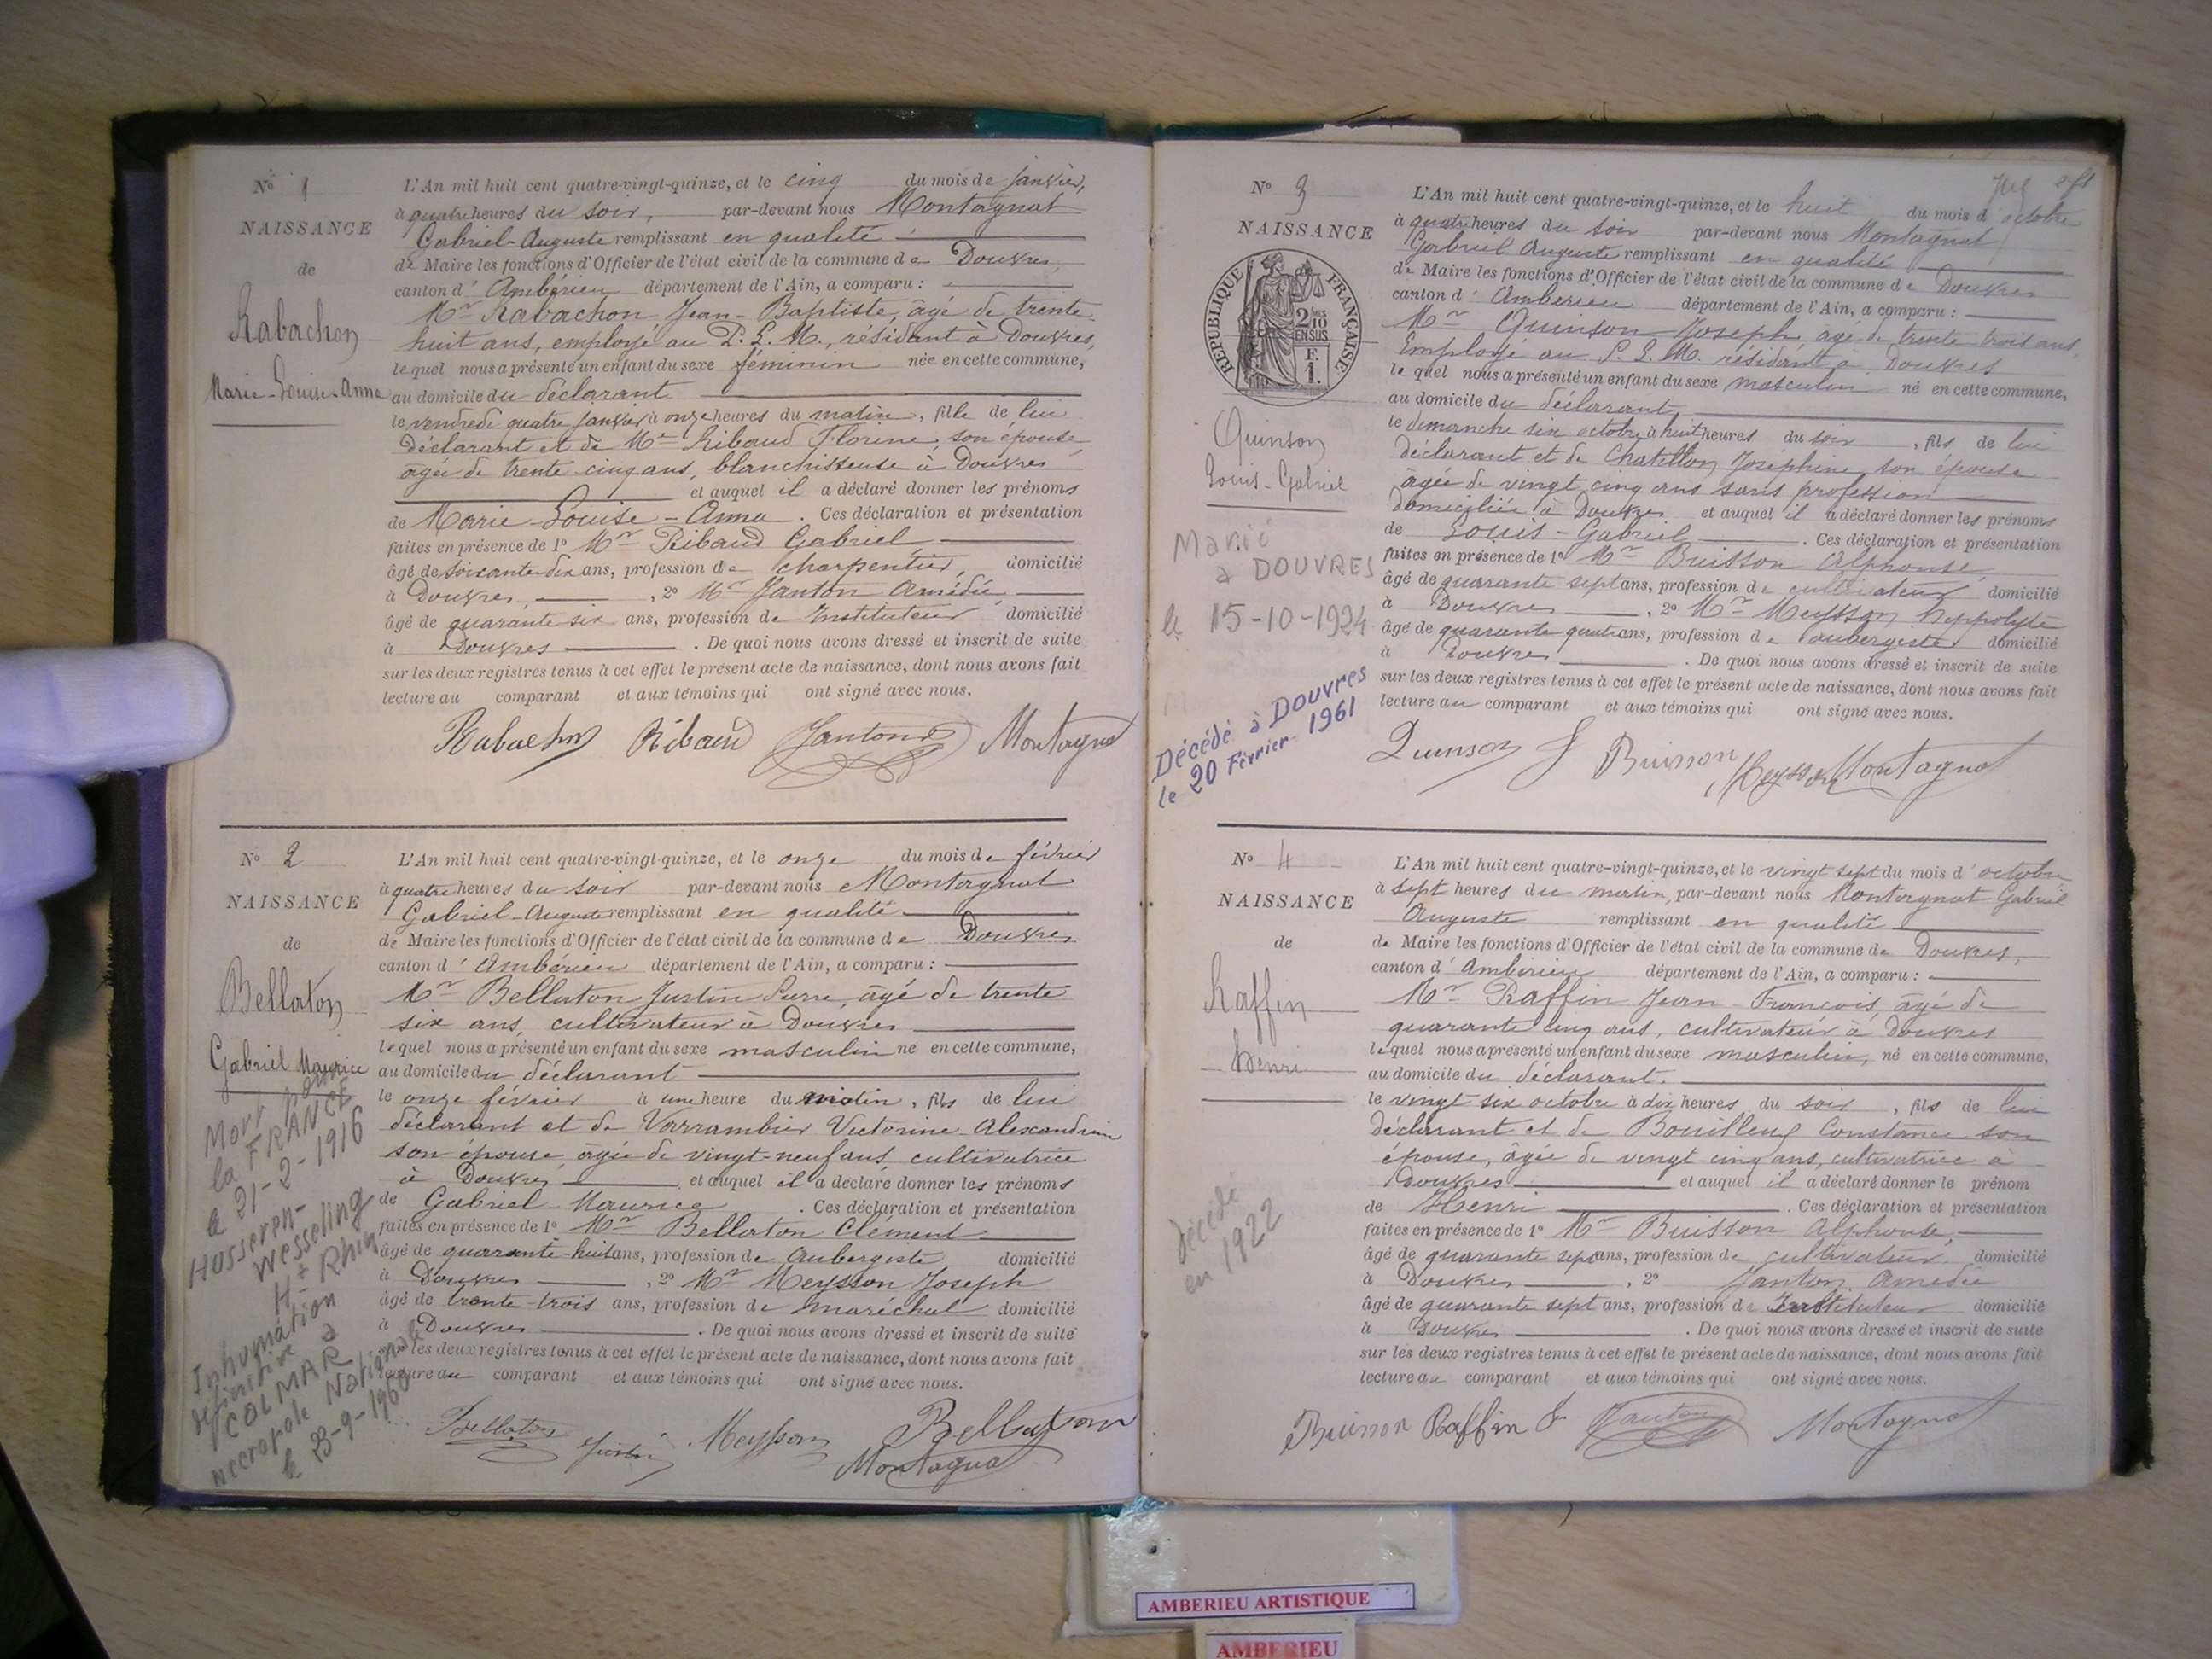 N° 1
NAISSANCE
de
Rabachon
Marie-Louise-Anna
L'An mil huit cent quatre-vingt-quinze, et le cinq du mois de janvier,
à quatre heures du soir, par-devant nous Montagnat
Gabriel-Auguste remplissant en qualité
de Maire les fonctions d'Officier de l'état civil de la commune de Douvres,
canton d'Ambérieu département de l'Ain, a comparu :
Mr Rabachon Jean-Baptiste, âgé de trente
huit ans, employé au P. L. M., résidant à Douvres,
lequel nous a présenté un enfant du sexe féminin née en cette commune,
au domicile du déclarant
le vendredi quatre janvier à onze heures du matin, fille de lui
déclarant et de Me Ribaud Florine, son épouse,
âgée de trente-cinq ans, blanchisseuse à Douvres
et auquel il a déclaré donner les prénoms
de Marie-Louise-Anna. Ces déclaration et présentation
faites en présence de 1° Mr Ribaud Gabriel,
âgé de soixante-dix ans, profession de charpentier, domicilié
à Douvres, , 2° Mr Janton Amédée,
âgé de quarante six ans, profession de Instituteur domicilié
à Douvres . De quoi nous avons dressé et inscrit de suite
sur les deux registres tenus à cet effet le présent acte de naissance, dont nous avons fait
lecture au comparant et aux témoins qui ont signé avec nous.
Rabachon Ribaud Janton Montagnat
N° 2
NAISSANCE
de
Bellaton
Gabriel Maurice
Mort pour
la FRANCE
le 21-2-1916
HUSSEREN-
WESSELING
Ht Rhin
Inhumation
définitive à
COLMAR
Nécropole Nationale
le 23-9-1960
L'An mil huit cent quatre-vingt-quinze, et le onze du mois de février
à quatre heures du soir par-devant nous Montagnat
Gabriel-Auguste remplissant en qualité
de Maire les fonctions d'Officier de l'état civil de la commune de Douvres
canton d'Ambérieu département de l'Ain, a comparu :
Mr Bellaton Justin Pierre, âgé de trente
six ans, cultivateur à Douvres
lequel nous a présenté un enfant du sexe masculin né en cette commune,
au domicile du déclarant
le onze février à une heure du matin, fils de lui
déclarant et de Varrambier Victorine-Alexandrine
son épouse âgée de vingt-neuf ans, cultivatrice
à Douvres et auquel il a déclaré donner les prénoms
de Gabriel-Maurice . Ces déclaration et présentation
faites en présence de 1° Mr Bellaton Clément
âgé de quarante-huit ans, profession de Aubergiste domicilié
à Douvres , 2° Mr Meysson Joseph
âgé de trente-trois ans, profession de maréchal domicilié
à Douvres . De quoi nous avons dressé et inscrit de suite
sur les deux registres tenus à cet effet le présent acte de naissance, dont nous avons fait
lecture au comparant et aux témoins qui ont signé avec nous.
Bellaton Justin Meysson Bellaton
Montagnat
N° 3
NAISSANCE
REPUBLIQUE FRANÇAISE
2/10
EN SUS
F.
1.
Quinson
Louis-Gabriel
Marié
à DOUVRES
le 15-10-1924
Décédé à Douvres
le 20 Février 1961
L'An mil huit cent quatre-vingt-quinze, et le huit du mois d'octobre
à quatre heures du soir par-devant nous Montagnat
Gabriel Auguste remplissant en qualité
de Maire les fonctions d'Officier de l'état civil de la commune de Douvres
canton d'Ambérieu département de l'Ain, a comparu :
Mr Quinson Joseph âgé de trente trois ans,
Employé au P. L. M. résidant à Douvres
lequel nous a présenté un enfant du sexe masculin né en cette commune,
au domicile du déclarant
le dimanche six octobre à huit heures du soir, fils de lui
déclarant et de Chatillon Joséphine son épouse
âgée de vingt cinq ans sans profession
domiciliée à Douvres et auquel il a déclaré donner les prénoms
de Louis-Gabriel . Ces déclaration et présentation
faites en présence de 1° Mr Buisson Alphonse,
âgé de quarante sept ans, profession de cultivateur domicilié
à Douvres , 2° Mr Meysson hippolyte
âgé de quarante quatre ans, profession de aubergiste domicilié
à Douvres . De quoi nous avons dressé et inscrit de suite
sur les deux registres tenus à cet effet le présent acte de naissance, dont nous avons fait
lecture au comparant et aux témoins qui ont signé avec nous.
Quinson J Buisson Meysson Montagnat
N° 4
NAISSANCE
de
Raffin
Henri
décédé
en 1922
L'An mil huit cent quatre-vingt-quinze, et le vingt sept du mois d'octobre
à sept heures du matin, par-devant nous Montagnat Gabriel
Auguste remplissant en qualité
de Maire les fonctions d'Officier de l'état civil de la commune de Douvres,
canton d'Ambérieu département de l'Ain, a comparu :
Mr Raffin Jean-François, âgé de
quarante cinq ans, cultivateur à Douvres
lequel nous a présenté un enfant du sexe masculin, né en cette commune,
au domicile du déclarant.
le vingt-six octobre à dix heures du soir, fils de lui
déclarant et de Constance son
épouse, âgée de vingt cinq ans, cultivatrice à
Douvres et auquel il a déclaré donner le prénom
de Henri . Ces déclaration et présentation
faites en présence de 1° Mr Buisson Alphonse,
âgé de quarante sept ans, profession de cultivateur domicilié
à Douvres , 2° Janton Amédée
âgé de quarante sept ans, profession de Instituteur domicilié
à Douvres . De quoi nous avons dressé et inscrit de suite
sur les deux registres tenus à cet effet le présent acte de naissance, dont nous avons fait
lecture au comparant et aux témoins qui ont signé avec nous.
Buisson Raffin Janton Montagnat
AMBERIEU ARTISTIQUE
AMBERIEU